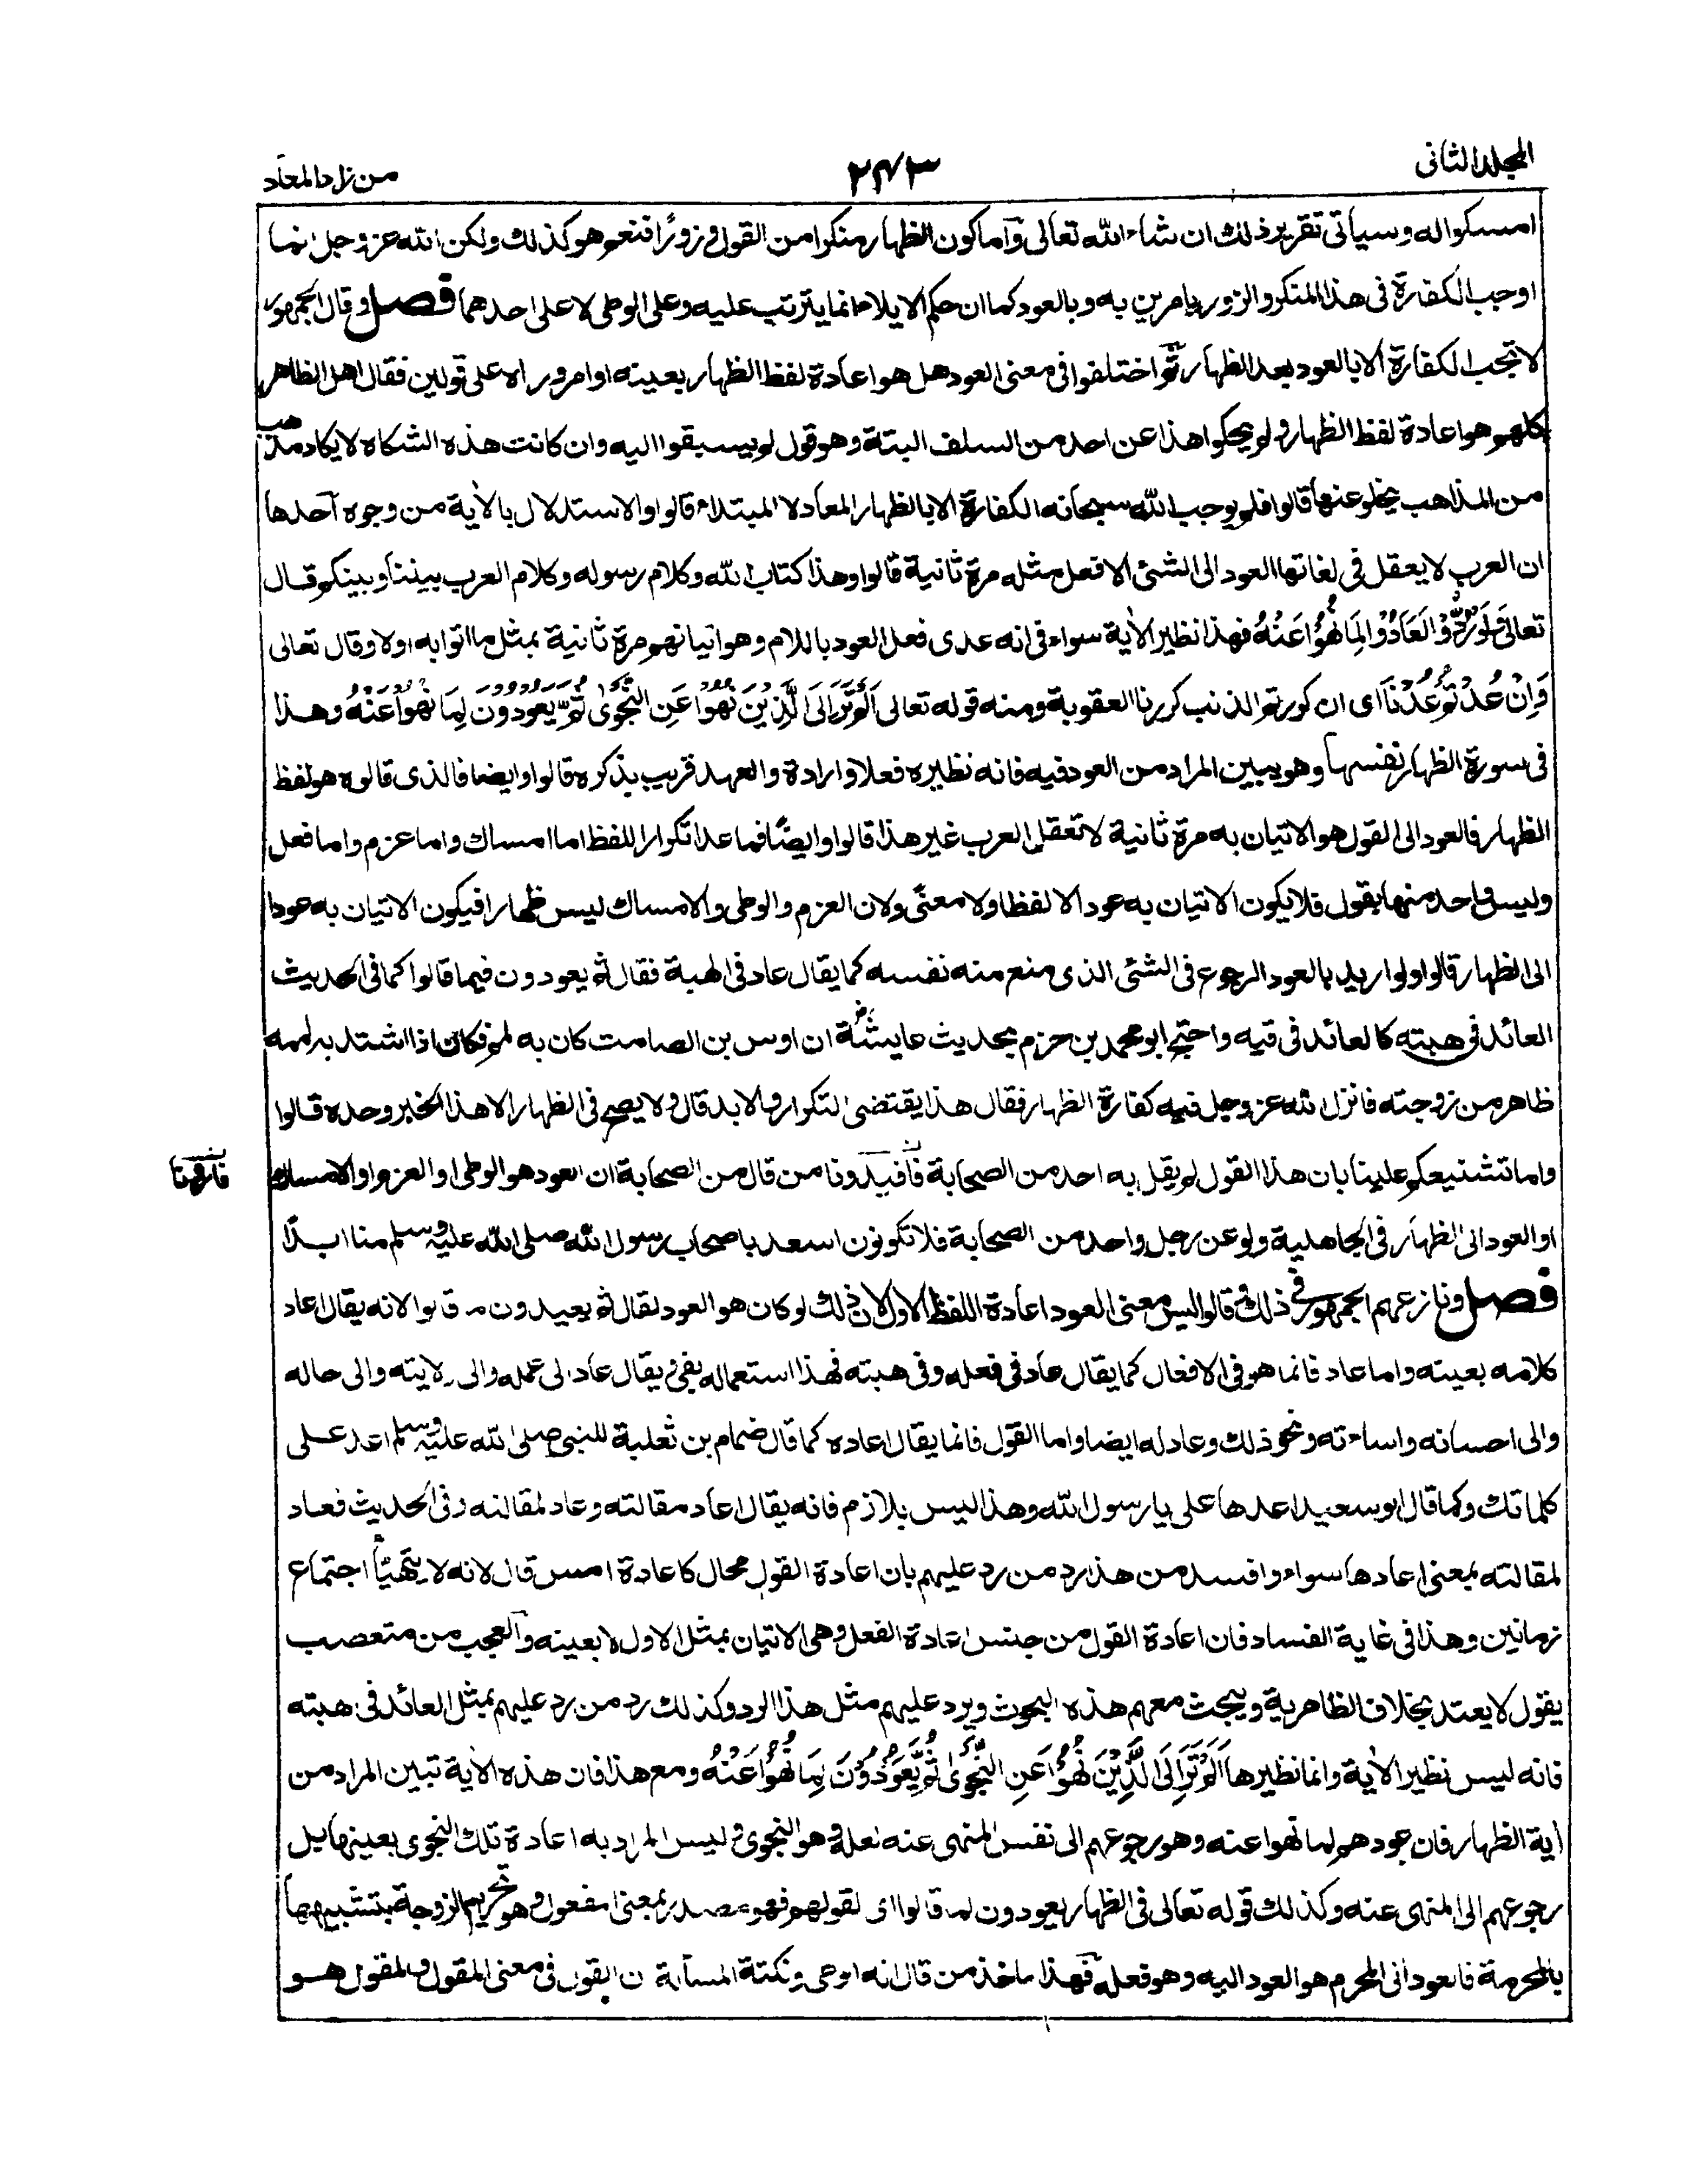 المجلد الثانى
٢٤٣
من زاد المعاد
امسكوا له وسيأتى تقرير ذلك ان شاء الله تعالى واما كون الظهار منكرا من القول وزورًا فنعم هو كذلك ولكن الله عز وجل انما
اوجب الكفارة فى هذا المنكر والزور بامرين به وبالعود كما ان حكم الايلاء انما يترتب عليه وعلى الوطى لا على احدهما فصل وقال الجمهور
لا تجب الكفارة الا بالعود بعد الظهار ثم اختلفوا فى معنى العود هل هو اعادة لفظ الظهار بعينه او امر وراه على قولين فقال اهل الظاهر
كلهم هو اعادة لفظ الظهار ولم يحكوا هذا عن احد من السلف البتة وهو قول لم يسبقوا اليه وان كانت هذه الشكاه لا يكاد مذهب
من المذاهب يخلو عنها قالوا فلم يوجب الله سبحانه الكفارة الا بالظهار المعاد لا المبتداء قالوا والاستدلال بالاية من وجوه احدها
ان العرب لا يعقل فى لغاتها العود الى الشئ الا فعل مثله مرة ثانية قالوا وهذا كتاب الله وكلام رسوله وكلام العرب بيننا وبينكم قال
تعالى وَلَوْ رُدُّوْا لَعَادُوْا لِمَا نُهُوْا عَنْهُ فهذا نظير الاية سواء فى انه عدى فعل العود باللام وهو اتيانهم مرة ثانية بمثل ما اتوا به اولا وقال تعالى
وَاِنْ عُدْتُمْ عُدْنَا اى ان كررتم الذنب كررنا العقوبة ومنه قوله تعالى اَلَمْ تَرَ اِلَى الَّذِيْنَ نُهُوْا عَنِ النَّجْوٰى ثُمَّ يَعُوْدُوْنَ لِمَا نُهُوْا عَنْهُ وهذا
فى سورة الظهار نفسها وهو يبين المراد من العود فيه فانه نظيره فعلا وارادة والعهد قريب بذكره قالوا وايضا فالذى قالوه هو لفظ
الظهار فالعود الى القول هو الاتيان به مرة ثانية لا تعقل العرب غير هذا قالوا وايضًا فما عدا تكرار اللفظ اما امساك واما عزم واما فعل
وليس واحد منها بقول فلا يكون الاتيان به عودا لا لفظا ولا معنًى ولان العزم والوطى والامساك ليس ظهارا فيكون الاتيان به عودا
الى الظهار قالوا ولو اريد بالعود الرجوع فى الشئ الذى منع منه نفسه كما يقال عاد فى الهبة فقال ثم يعودون فيما قالوا كما فى الحديث
العائد فى هبته كالعائد فى قيه واحتج ابو محمد بن حزم بحديث عايشة رض ان اوس بن الصامت كان به لمم فكان اذا اشتد به لممه
ظاهر من زوجته فانزل الله عز وجل فيه كفارة الظهار فقال هذا يقتضى التكرار ولا بد قال ولا يصح فى الظهار الا هذا الخبر وحده قالوا
واما تشنيعكم علينا بان هذا القول لم يقل به احد من الصحابة فافيدونا من قال من الصحابة ان العود هو الوطى او العزم او الامساك
او العود الى الظهار فى الجاهلية ولو عن رجل واحد من الصحابة فلا تكونون اسعد باصحاب رسول الله صلى الله عليه وسلم منا ابدًا
فصل ونازعهم الجمهور فى ذلك وقالوا ليس معنى العود اعادة اللفظ الاول لان ذلك لو كان هو العود لقال ثم يعيدون ما قالوا لانه يقال اعاد
كلامه بعينه واما عاد فانما هو فى الافعال كما يقال عاد فى فعله وفى هبته فهذا استعماله بفى ويقال عاد الى عمله والى ولايته والى حاله
والى احسانه واساءته ونحو ذلك وعاد له ايضا واما القول فانما يقال اعاده كما قال ضمام بن ثعلبة للنبى صلى الله عليه وسلم اعد على
كلماتك وكما قال ابو سعيد اعدها على يا رسول الله وهذا ليس بلازم فانه يقال اعاد مقالته وعاد لمقالته وفى الحديث فعاد
لمقالته بمعنى اعادها سواء وافسد من هذا رد من رد عليهم بان اعادة القول محال كاعادة امس قال لانه لا يتهيأ اجتماع
زمانين وهذا فى غاية الفساد فان اعادة القول من جنس اعادة الفعل وهى الاتيان بمثل الاول لا بعينه والعجب من متعصب
يقول لا يعتد بخلاف الظاهرية ويبحث معهم هذه البحوث ويرد عليهم مثل هذا الرد وكذلك رد من رد عليهم بمثل العائد فى هبته
فانه ليس نظير الاية وانما نظيرها اَلَمْ تَرَ اِلَى الَّذِيْنَ نُهُوْا عَنِ النَّجْوٰى ثُمَّ يَعُوْدُوْنَ لِمَا نُهُوْا عَنْهُ ومع هذا فان هذه الاية تبين المراد من
اية الظهار فان عودهم لما نهوا عنه وهو رجوعهم الى نفس المنهى عنه فعله وهو النجوى وليس المراد به اعادة تلك النجوى بعينها بل
رجوعهم الى المنهى عنه وكذلك قوله تعالى فى الظهار يعودون لما قالوا اى لقولهم فهو مصدر بمعنى المفعول وهو تحريم الزوجة بتشبيهها
بالمحرمة فالعود الى المحرم هو العود اليه وهو فعله فهذا ماخذ من قال انه الوطى ونكتة المسألة ان القول فى معنى المقول والمقول هو